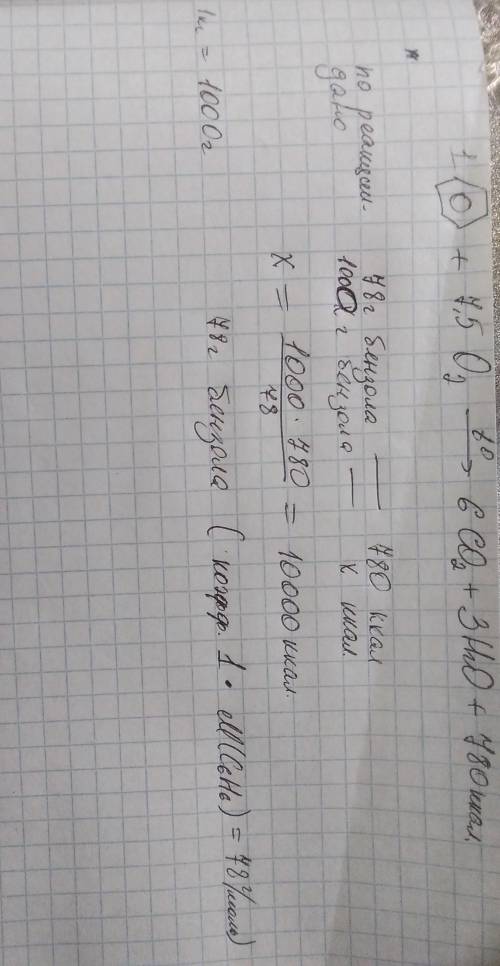 1 + 7,5 O₂ —t°→ 6 CO₂ + 3H₂O + 780 ккал.
по реакции - 78г бензола — 780 ккал
дано 1000 г бензола — х ккал.
х = 1000 · 780 / 78 = 10000 ккал.
78г бензола ( коэфф. 1 · М(C₆H₆) = 78 г/моль)
1кг = 1000г